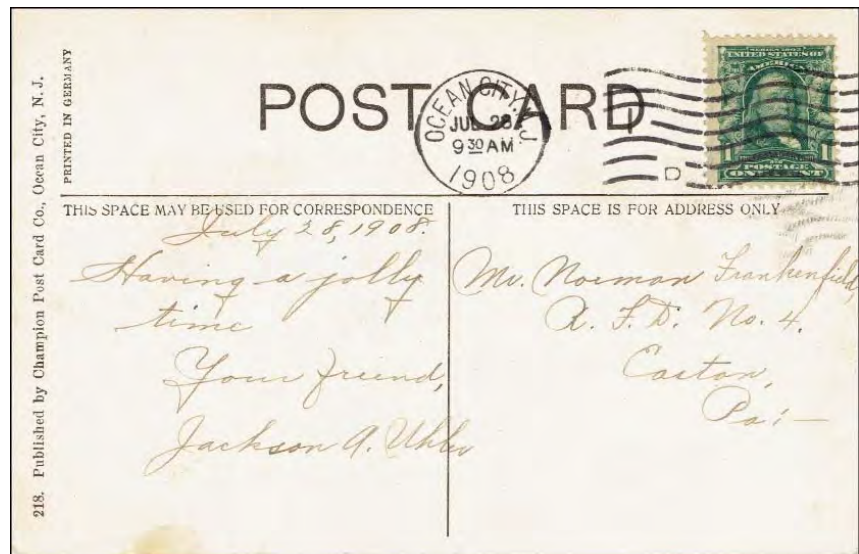 POST CARD
218. Published by Champion Post Card Co., Ocean City, N. J.
PRINTED IN GERMANY
OCEAN CITY, N.J.
JUL 28
9 30 AM
1908
D
SERIES 1902
UNITED STATES OF
AMERICA
POSTAGE
1 ONE CENT 1
THIS SPACE MAY BE USED FOR CORRESPONDENCE
July 28, 1908.
Having a jolly
time
Your friend,
Jackson A. Uhler
THIS SPACE IS FOR ADDRESS ONLY
Mr. Norman Frankenfield,
R. F. D. No. 4.
Easton,
Pa:—